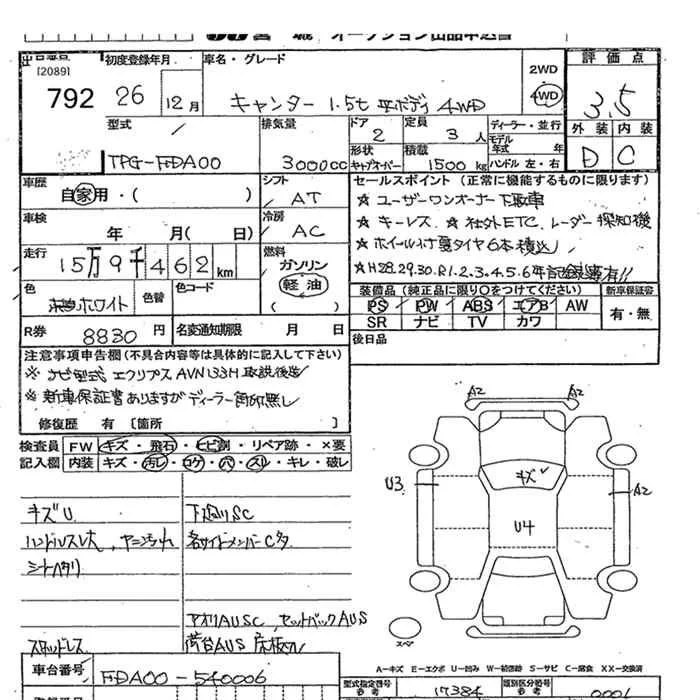 宮 城 オークション出品申込書
出品番号
[2089]
792
初度登録年月
26 12月
車名・グレード
キャンター 1.5t 平ボディ 4WD
2WD
4WD
評 価 点
3.5
外 装 内 装
D C
型式
TPG-FDA00
排気量
3000cc
ドア
2
定員
3 人
ディーラー・並行
モデル
年式 年
形状
キャブオーバー
積載
1500kg
ハンドル 左・右
車歴
自家用・( )
シフト
AT
車検
年 月( 日)
冷房
AC
走行
15万9千462km
燃料
ガソリン
軽 油
( )
セールスポイント (正常に機能するものに限ります)
☆ ユーザーワンオーナー下取車
☆ キーレス ☆ 社外ETC、レーダー探知機
☆ ホイール付夏タイヤ6本積込
☆ H28.29.30.R1.2.3.4.5.6年
色
ホワイト
色替
色コード
装備品 (純正品に限り○をつけてください)
PS PW ABS エアB AW
SR ナビ TV カワ
新車保証書
有・無
R券
8830 円
名変通知期限 月 日
後日品
注意事項申告欄 (不具合内容等は具体的に記入して下さい)
※ ナビ型式 エクリプス AVN133H 取説後送
※ 新車保証書ありますがディーラー角印無し
修復歴 有 [箇所 ]
検査員 FW キズ・飛石・ヒビ割・リペア跡・×要
記入欄 内装 キズ・汚レ・コゲ・穴・スレ・キレ・破レ
キズU 下廻りSC
ハンドルスレ大、ヤニ汚れ 各サイドメンバーCタ
シートヘタリ
アオリAUSC、セットバックAUS
スタッドレス 荷台AUS 床板ワレ
A2 A2
U3
キズ
A2
U4
スペア
A-キズ E-エクボ U-凹み W-補修跡 S-サビ C-腐食 XX-交換済
車台番号
FDA00-540006
型式指定番号
参考
17384
類別区分番号
参考
0001